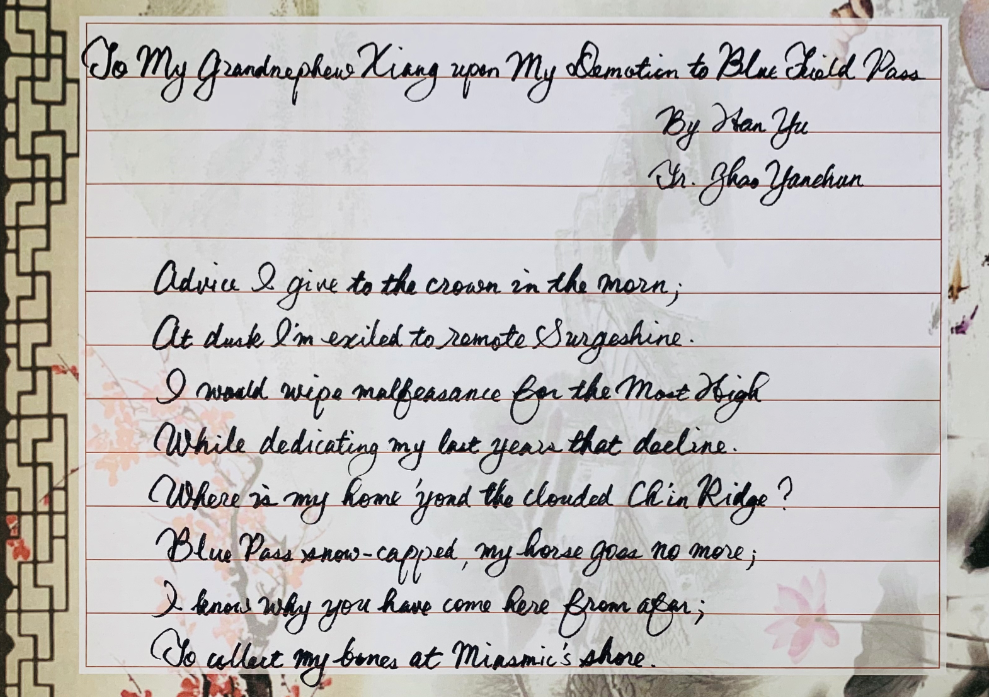 To My Grandnephew Xiang upon My Demotion to Blue Field Pass
By Han Yu
Tr. Zhao Yanchun
Advice I give to the crown in the morn;
At dusk I'm exiled to remote Surgeshine.
I would wipe malfeasance for the Most High
While dedicating my last years that decline.
Where is my home 'yond the clouded Ch'in Ridge?
Blue Pass snow-capped, my horse goes no more;
I know why you have come here from afar;
To collect my bones at Miasmic's shore.